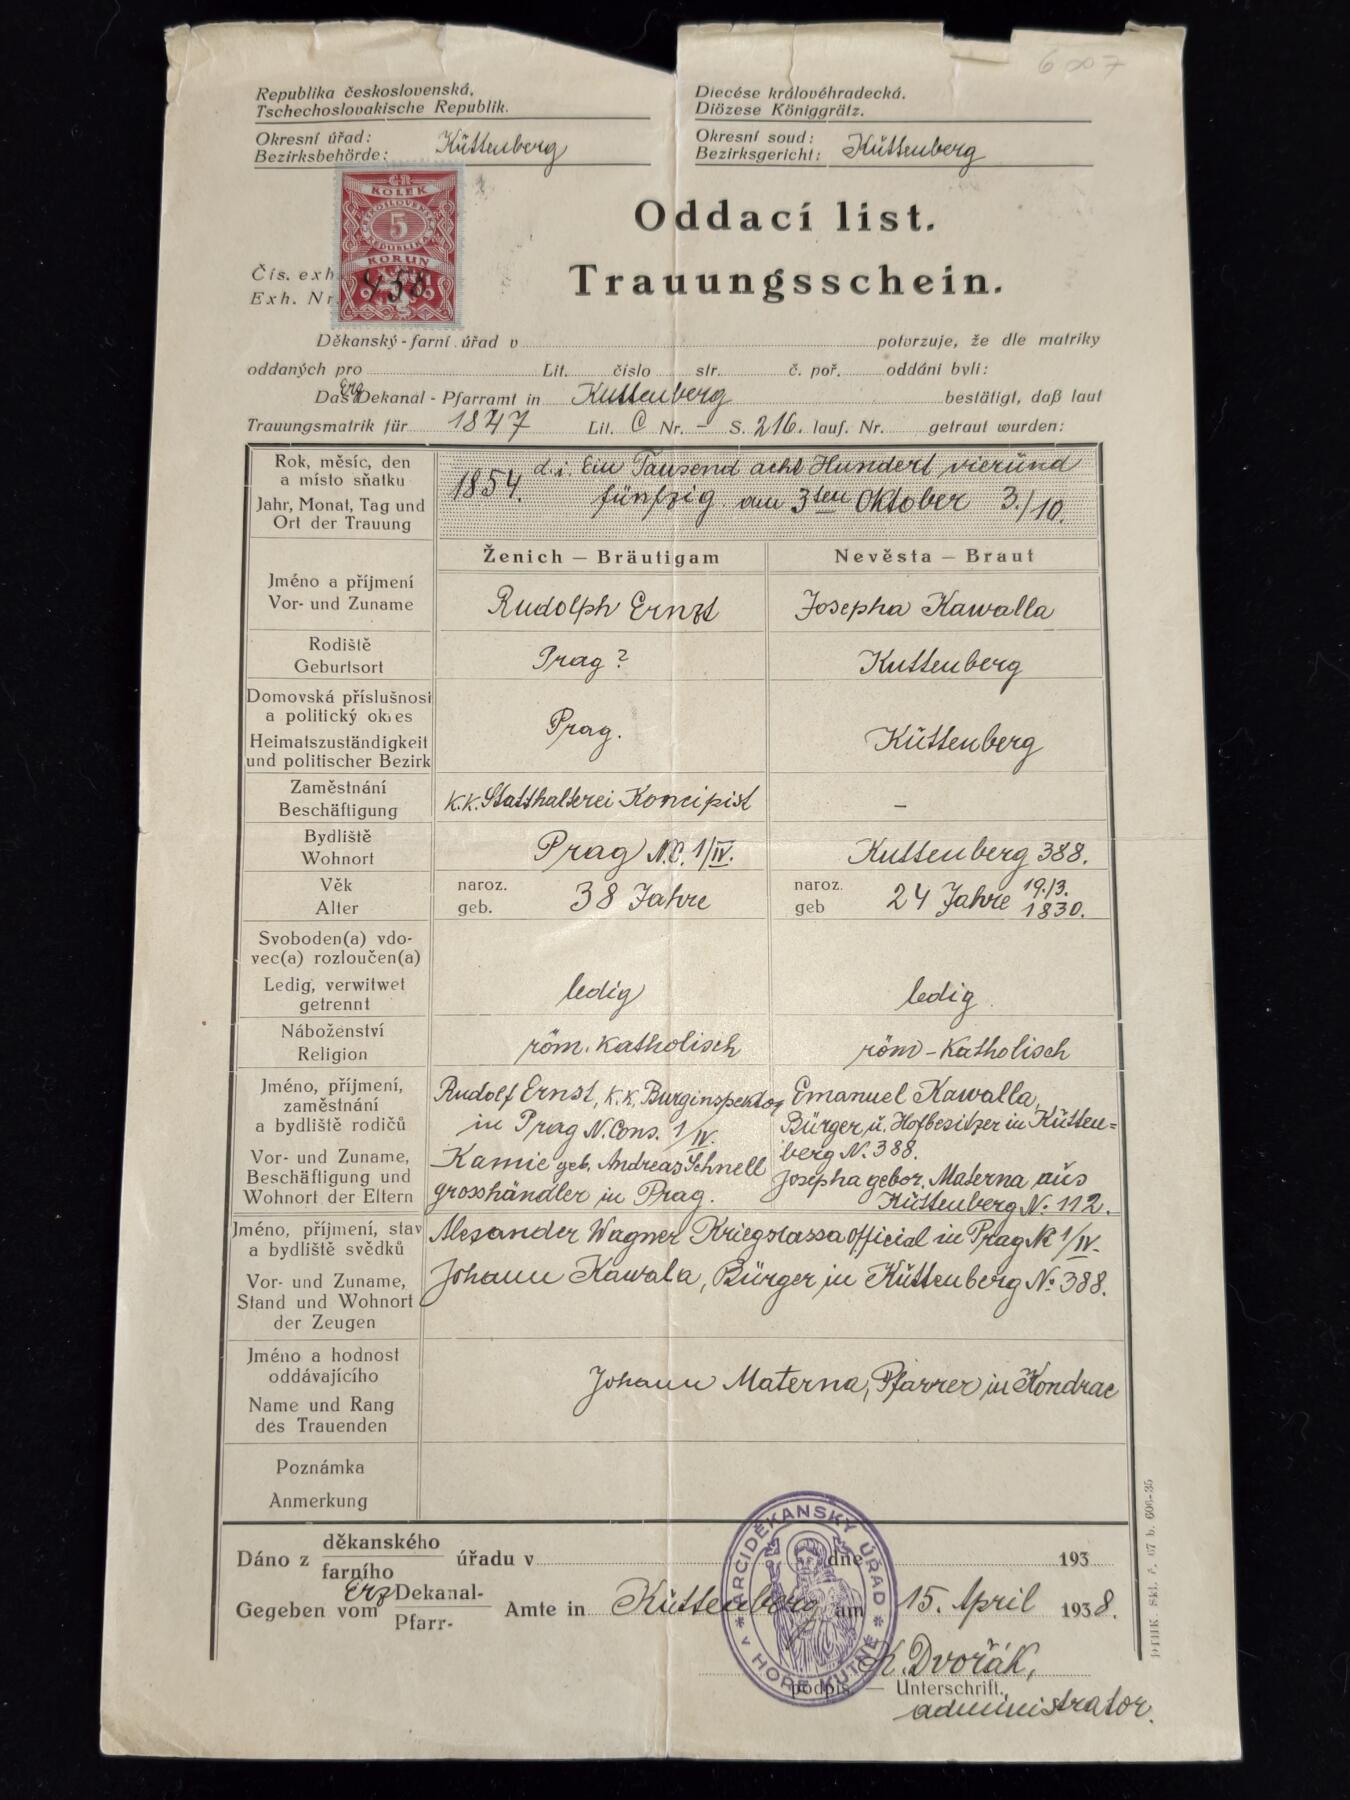 6007
Republika československá.
Tschechoslovakische Republik.
Diecése královéhradecká.
Diözese Königgrätz.
Okresní úřad:
Bezirksbehörde: Küttenberg
Okresní soud:
Bezirksgericht: Küttenberg
KOLEK
ČESKOSLOVENSKÁ
5
REPUBLIKA
KORUN
Oddací list.
Trauungsschein.
Čís. exh.
Exh. Nr. 458
Děkanský - farní úřad v potvrzuje, že dle matriky
oddaných pro Lit. číslo str. č. poř. oddáni byli:
Das Erz Dekanal - Pfarramt in Kuttenberg bestätigt, daß laut
Trauungsmatrik für 1847 Lit. C Nr. – S. 216. lauf. Nr. getraut wurden:
Rok, měsíc, den
a místo sňatku
Jahr, Monat, Tag und
Ort der Trauung
1854. d. i. Ein Tausend acht Hundert vieründ
fünfzig am 3ten Oktober 3./10.
Ženich — Bräutigam
Nevěsta — Braut
Jméno a příjmení
Vor- und Zuname
Rudolph Ernst
Josepha Kawalla
Rodiště
Geburtsort
Prag?
Kuttenberg
Domovská příslušnost
a politický okres
Heimatszuständigkeit
und politischer Bezirk
Prag.
Küttenberg
Zaměstnání
Beschäftigung
k.k. Statthalterei Koncipist
–
Bydliště
Wohnort
Prag N.C. 1/IV.
Kuttenberg 388.
Věk
Alter
naroz.
geb. 38 Jahre
naroz.
geb 24 Jahre 19./3.
1830.
Svoboden(a) vdo-
vec(a) rozloučen(a)
Ledig, verwitwet
getrennt
ledig
ledig.
Náboženství
Religion
röm. katholisch
röm - katholisch
Jméno, příjmení,
zaměstnání
a bydliště rodičů
Vor- und Zuname,
Beschäftigung und
Wohnort der Eltern
Rudolf Ernst, k.k. Burginspektor
in Prag N. Cons. 1/IV.
Kamie geb. Andreas Schnell
grosshändler in Prag.
Emanuel Kawalla,
Bürger ü. Hofbesitzer in Kütten=
berg N. 388.
Josepha gebor. Materna aüs
Küttenberg N. 112.
Jméno, příjmení, stav
a bydliště svědků
Vor- und Zuname,
Stand und Wohnort
der Zeugen
Alexander Wagner Kriegscassaofficial in Prag NC 1/IV.
Johann Kawala, Bürger in Küttenberg No. 388.
Jméno a hodnost
oddávajícího
Name und Rang
des Trauenden
Johann Materna, Pfarrer in Kondrac
Poznámka
Anmerkung
Dáno z děkanského
farního úřadu v dne 193
Gegeben vom Erz Dekanal-
Pfarr- Amte in Küttenberg am 15. April 1938.
ARCIDĚKANSKÝ ÚŘAD
V HOŘE KUTNÉ
K. Dvořák,
podpis. — Unterschrift.
administrator.
DTHK. Skl. č. 67 b. 606-35